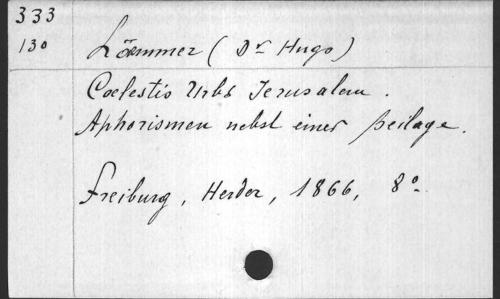 333
130
Lämmer (Dr Hugo)
Coelestis Urbs Jerusalem.
Aphorismen nebst einer Beilage.
Freiburg, Herder, 1866, 8o.